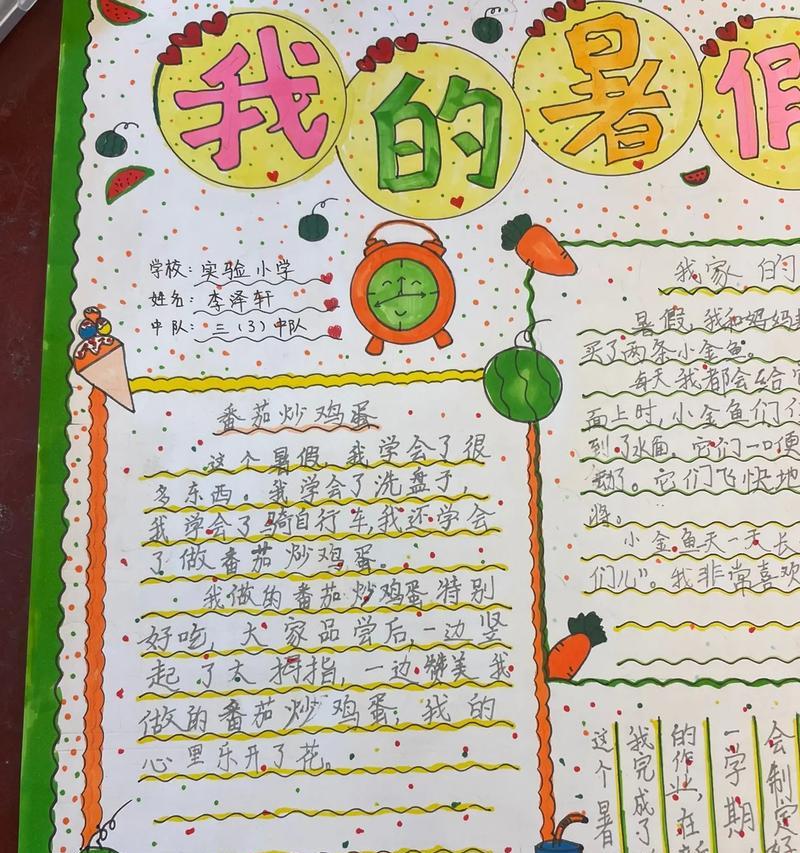 我的暑假
学校：实验小学
姓名：李泽轩
中队：三（3）中队
番茄炒鸡蛋
这个暑假，我学会了很
多东西。我学会了洗盘子，
我学会了骑自行车，我还学会
了做番茄炒鸡蛋。
我做的番茄炒鸡蛋特别
好吃，大家品尝后，一边竖
起了大拇指，一边赞美我
做的番茄炒鸡蛋，我的
心里乐开了花。
我家的
暑假，我和妈妈
买了两条小金鱼。
每天我都会给
面上时，小金鱼们
到了水面，它们一口便
动了。它们飞快地
小金鱼天一天长
们儿”。我非常喜欢
会制定
一学期
的作业，在
我完成了
这个暑